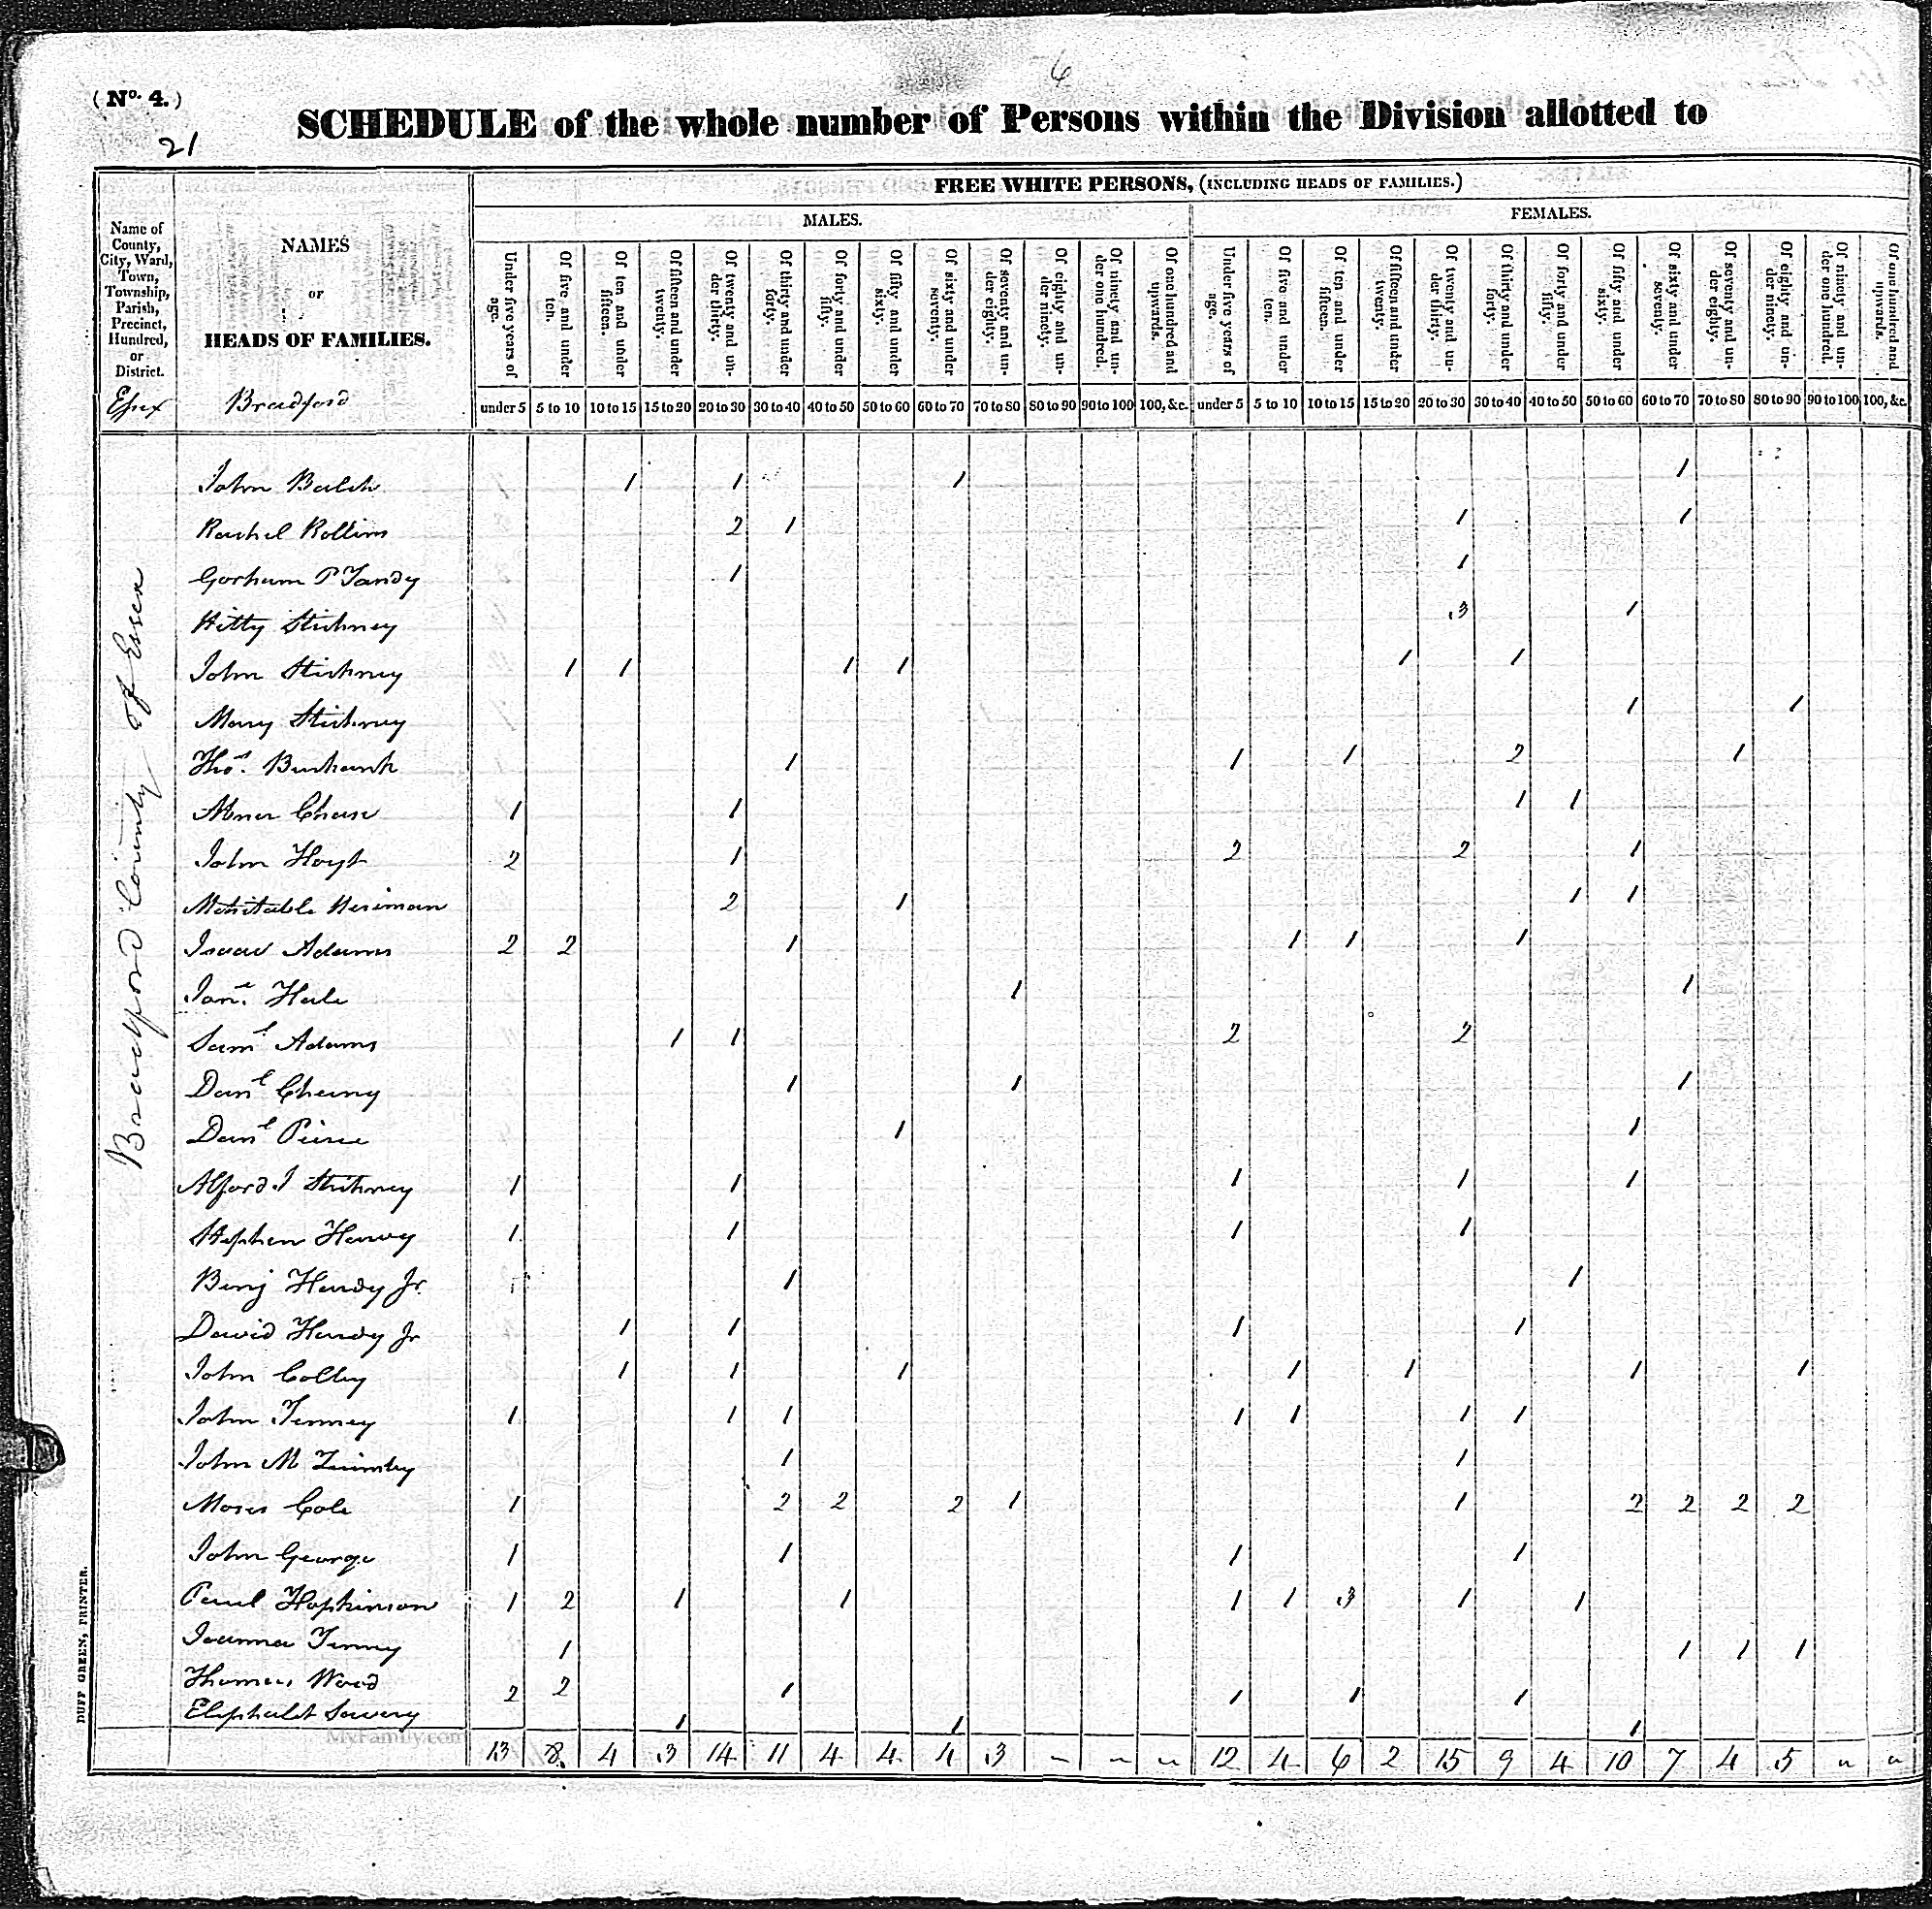 6
(No. 4.)
SCHEDULE of the whole number of Persons within the Division allotted to
21
FREE WHITE PERSONS, (INCLUDING HEADS OF FAMILIES.)
MALES. FEMALES.
Name of County, City, Ward, Town, Township, Parish, Precinct, Hundred, or District.
NAMES
OF
HEADS OF FAMILIES.
Under five years of age.
Of five and under ten.
Of ten and under fifteen.
Of fifteen and under twenty.
Of twenty and under thirty.
Of thirty and under forty.
Of forty and under fifty.
Of fifty and under sixty.
Of sixty and under seventy.
Of seventy and under eighty.
Of eighty and under ninety.
Of ninety and under one hundred.
Of one hundred and upwards.
Under five years of age.
Of five and under ten.
Of ten and under fifteen.
Of fifteen and under twenty.
Of twenty and under thirty.
Of thirty and under forty.
Of forty and under fifty.
Of fifty and under sixty.
Of sixty and under seventy.
Of seventy and under eighty.
Of eighty and under ninety.
Of ninety and under one hundred.
Of one hundred and upwards.
Essex Bradford under 5 5 to 10 10 to 15 15 to 20 20 to 30 30 to 40 40 to 50 50 to 60 60 to 70 70 to 80 80 to 90 90 to 100 100, &c. under 5 5 to 10 10 to 15 15 to 20 20 to 30 30 to 40 40 to 50 50 to 60 60 to 70 70 to 80 80 to 90 90 to 100 100, &c.
Bradford County of Essex
John Balch 1 1 1 1
Rachel Rollins 2 1 1 1
Gorham P Tandy 1 1
Kitty Stickney 3 1
John Stickney 1 1 1 1 1 1
Mary Stickney 1 1
Thos. Burbank 1 1 1 2 1
Abner Chase 1 1 1 1
John Hoyt 2 1 2 2 1
Mehitable Meriman 2 1 1 1
Isaac Adams 2 2 1 1 1 1
Hale 1 1
Saml Adams 1 1 2 2
Danl Cheny 1 1 1
Danl Pierce 1 1
Alford I Stickney 1 1 1 1 1
Stephen Harvy 1 1 1 1
Benj Hardy Jr. 1 1
David Hardy Jr 1 1 1 1
John Colby 1 1 1 1 1 1 1
John Tenney 1 1 1 1 1 1 1
John M 1 1
Moses Cole 1 2 2 2 1 1 2 2 2 2
John George 1 1 1 1
Paul Hopkinson 1 2 1 1 1 1 3 1 1
Joanna Tenny 1 1 1 1
Thomas Wood 2 2 1 1 1 1
Eliphalet Savery 1 1 1
MyFamily.com
13 8 4 3 14 11 4 4 4 3 12 4 6 2 15 9 4 10 7 4 5
DUFF GREEN, PRINTER.